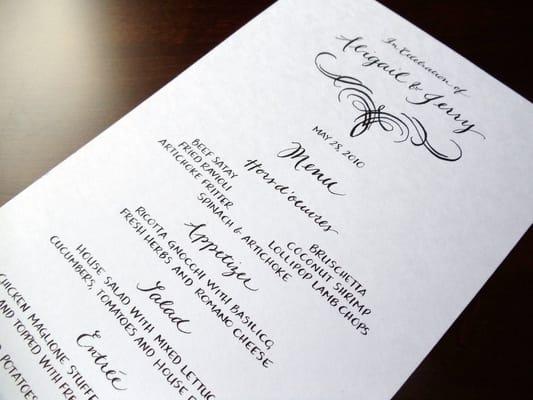 In Celebration of
Abigail & Jerry
MAY 28, 2010
Menu
Hors d'oeuvres
BEEF SATAY
FRIED RAVIOLI
ARTICHOKE FRITTER
SPINACH & ARTICHOKE
BRUSCHETTA
COCONUT SHRIMP
LOLLIPOP LAMB CHOPS
Appetizer
RICOTTA GNOCCHI WITH BASILICO,
FRESH HERBS AND ROMANO CHEESE
Salad
HOUSE SALAD WITH MIXED LETTUC
CUCUMBERS, TOMATOES AND HOUSE
Entrée
CHICKEN MAGLIONE STUFFE
AND TOPPED WITH FRE
POTATOES